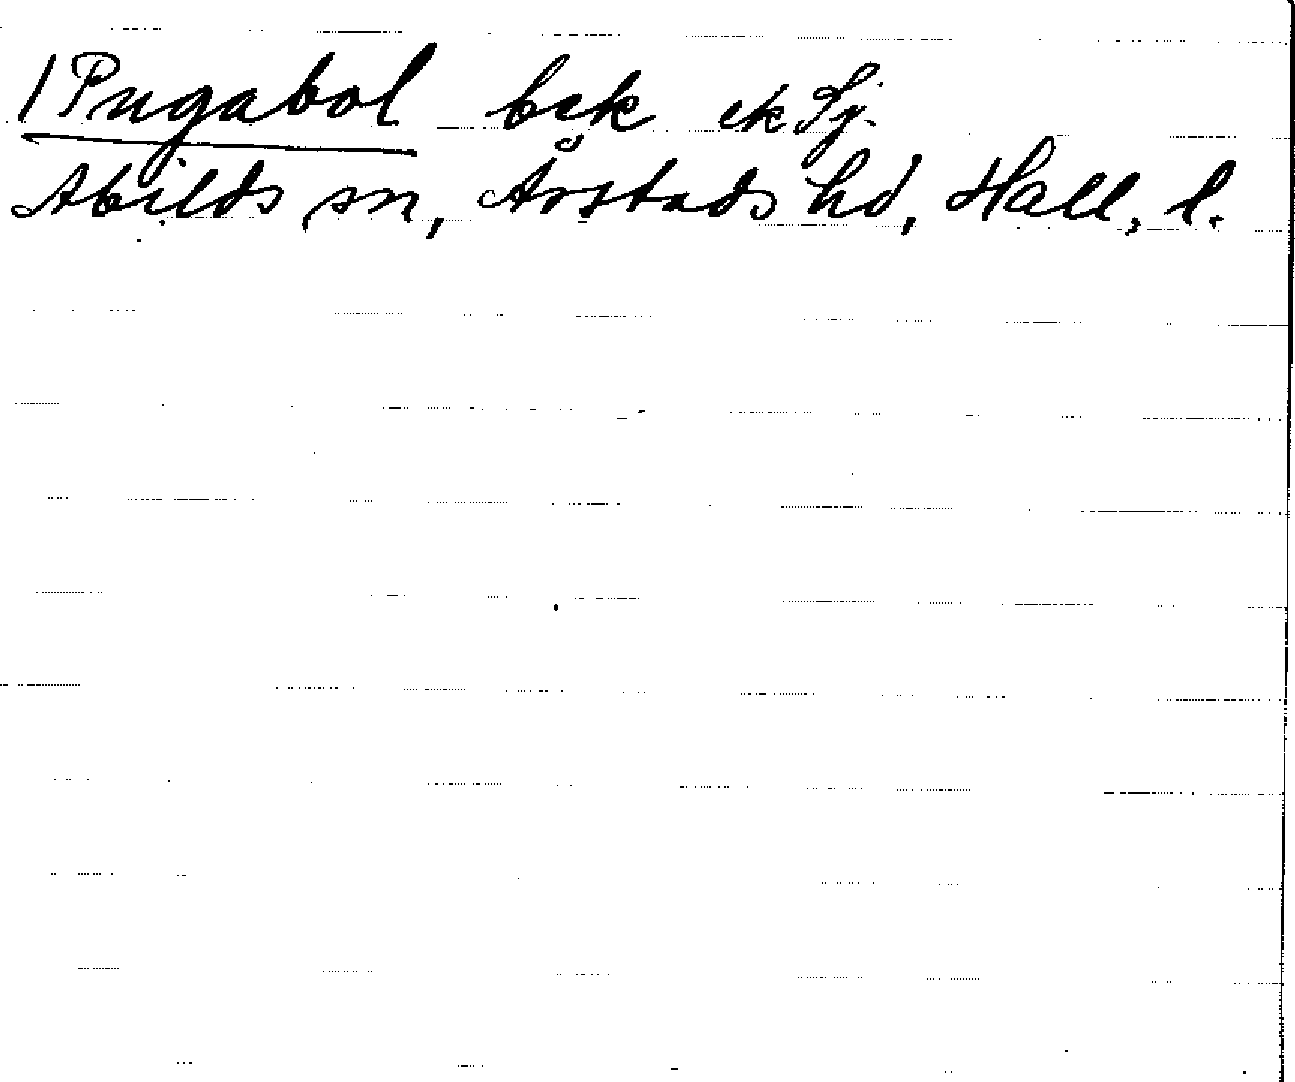 /Pugabol bek ek Sj.
Abilds sn, Årstads hd, Hall, l.